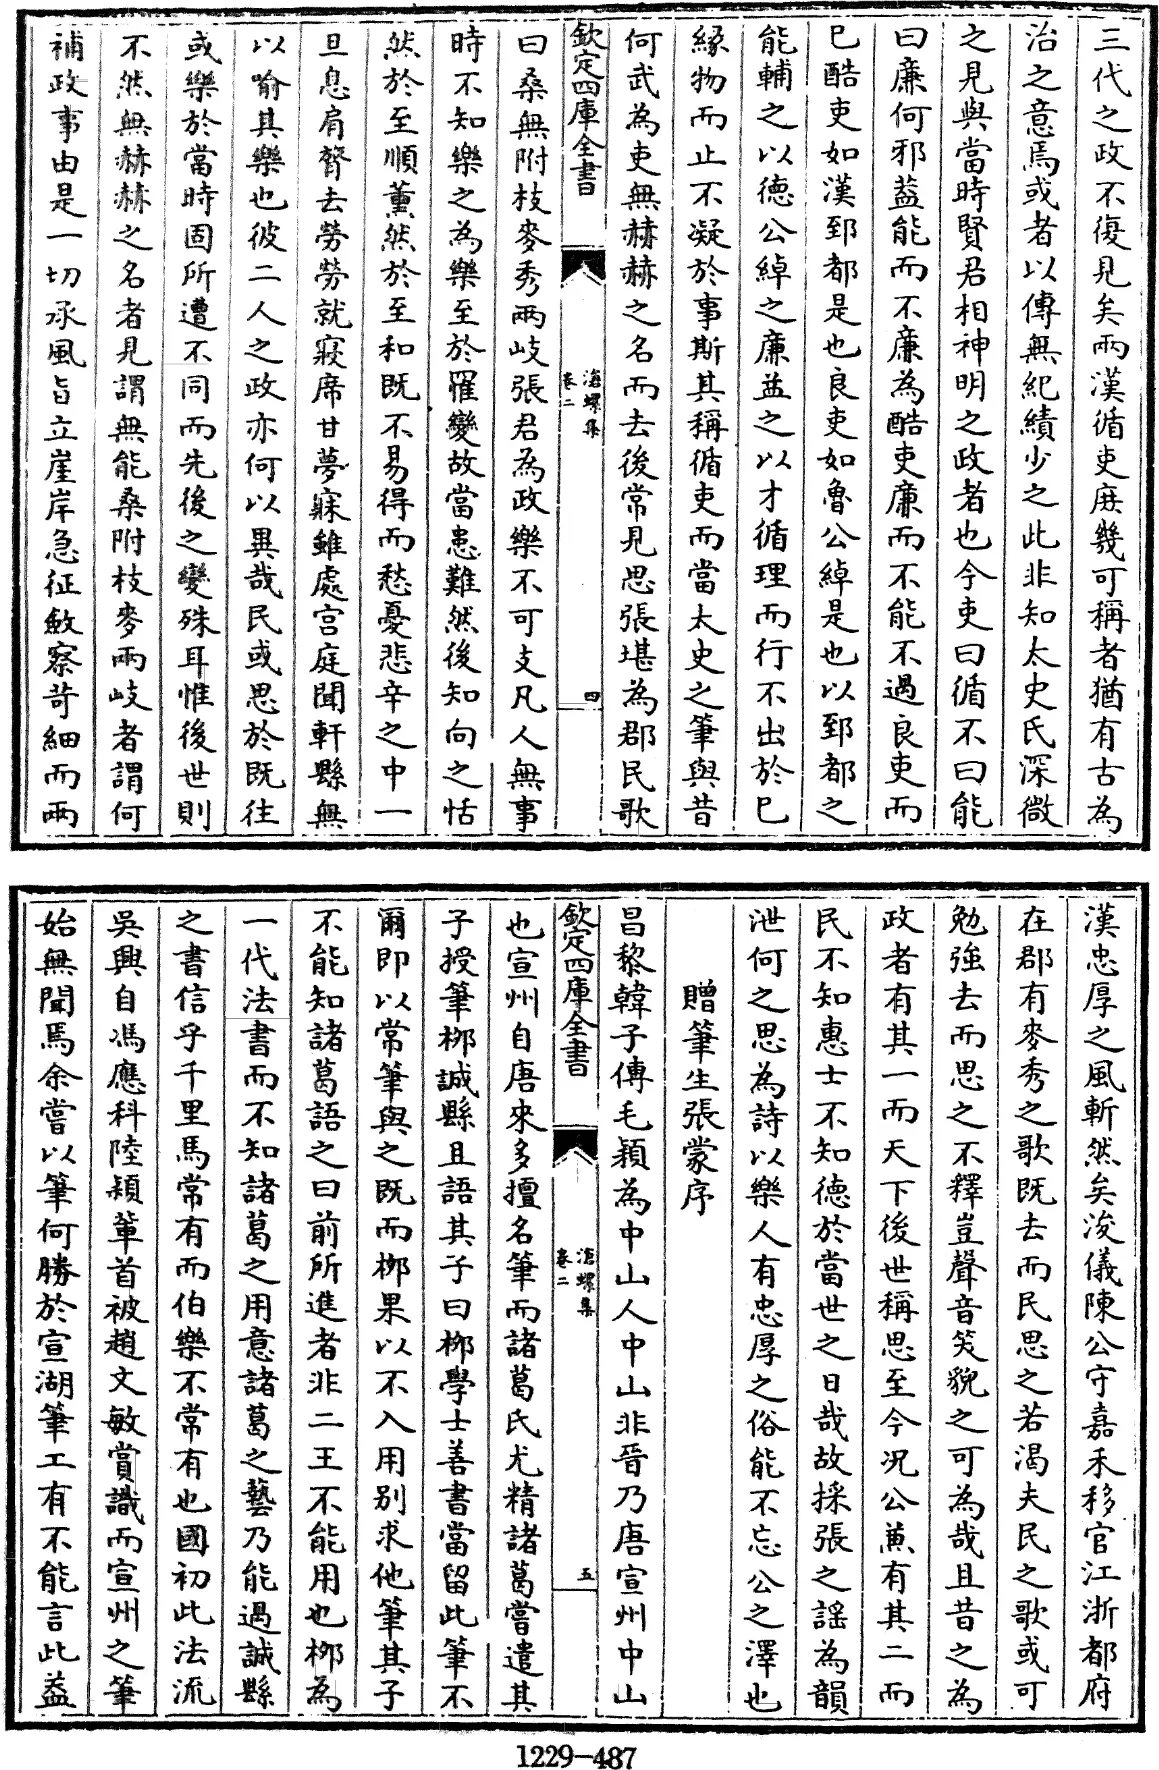 三代之政不復見矣兩漢循吏庻幾可稱者猶有古為
治之意焉或者以傳無紀績少之此非知太史氏深微
之見與當時賢君相神明之政者也今吏曰循不曰能
曰廉何邪葢能而不廉為酷吏廉而不能不過良吏而
已酷吏如漢郅都是也良吏如魯公綽是也以郅都之
能輔之以德公綽之廉益之以才循理而行不出於已
緣物而止不凝於事斯其稱循吏而當太史之筆與昔
何武為吏無赫赫之名而去後常見思張堪為郡民歌
欽定四庫全書
海螺集
卷二
四
曰桑無附枝麥秀兩岐張君為政樂不可支凡人無事
時不知樂之為樂至於罹變故當患難然後知向之恬
然於至順薰然於至和既不易得而愁憂悲辛之中一
旦息肩謦去勞勞就寢席甘夢寐雖處宫庭聞軒縣無
以喻其樂也彼二人之政亦何以異哉民或思於既往
或樂於當時固所遭不同而先後之變殊耳惟後世則
不然無赫赫之名者見謂無能桑附枝麥兩岐者謂何
補政事由是一切承風旨立崖岸急征斂察苛細而兩
漢忠厚之風斬然矣浚儀陳公守嘉禾移官江浙都府
在郡有麥秀之歌既去而民思之若渴夫民之歌或可
勉強去而思之不釋豈聲音笑貌之可為哉且昔之為
政者有其一而天下後世稱思至今况公兼有其二而
民不知惠士不知德於當世之日哉故採張之謡為韻
泄何之思為詩以樂人有忠厚之俗能不忘公之澤也
贈筆生張蒙序
昌黎韓子傳毛穎為中山人中山非晉乃唐宣州中山
欽定四庫全書
滄螺集
卷二
五
也宣州自唐來多擅名筆而諸葛氏尤精諸葛嘗遣其
子授筆栁誠縣且語其子曰栁學士善書當留此筆不
爾即以常筆與之既而栁果以不入用别求他筆其子
不能知諸葛語之曰前所進者非二王不能用也栁為
一代法書而不知諸葛之用意諸葛之藝乃能過誠縣
之書信乎千里馬常有而伯樂不常有也國初此法流
吳興自馮應科陸穎輩首被趙文敏賞識而宣州之筆
始無聞焉余嘗以筆何勝於宣湖筆工有不能言此葢
1229-487